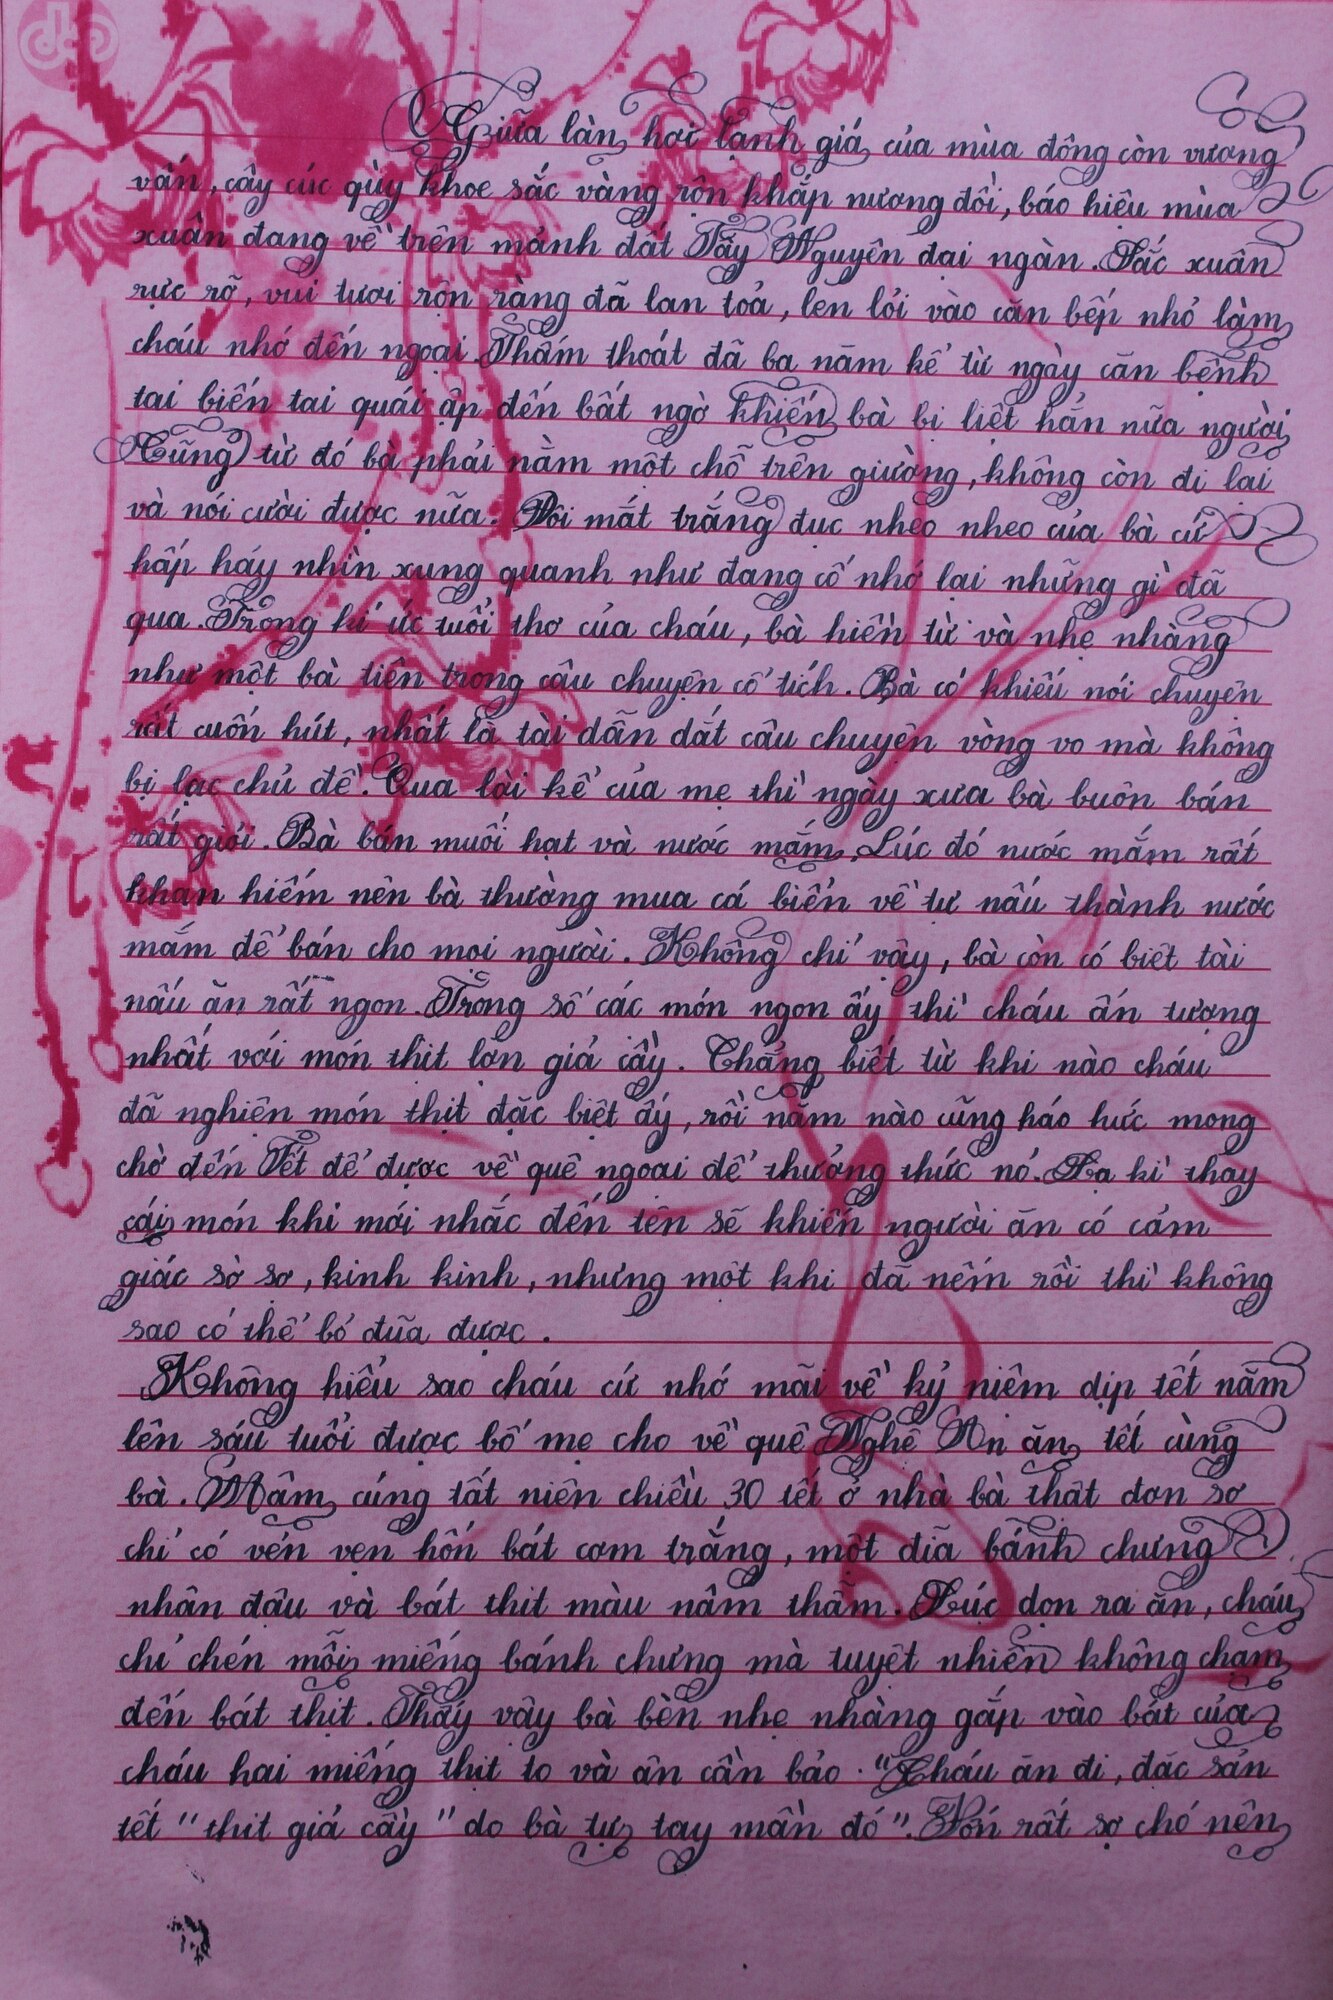 Giữa làn hơi lạnh giá của mùa đông còn vương
vấn, cây cúc qùy khoe sắc vàng rộn khắp nương đồi, báo hiệu mùa
xuân đang về trên mảnh đất Tây Nguyên đại ngàn. Sắc xuân
rực rỡ, vui tươi rộn ràng đã lan toả, len lỏi vào căn bếp nhỏ làm
cháu nhớ đến ngoại. Thấm thoát đã ba năm kể từ ngày căn bệnh
tai biến tai quái ập đến bất ngờ khiến bà bị liệt hẳn nữa người
Cũng từ đó bà phải nằm một chỗ trên giường, không còn đi lại
và nói cười được nữa. Đôi mắt trắng đục nheo nheo của bà cứ
hấp háy nhìn xung quanh như đang cố nhớ lại những gì đã
qua. Trong kí ức tuổi thơ của cháu, bà hiền từ và nhẹ nhàng
như một bà tiên trong câu chuyện cổ tích. Bà có khiếu nói chuyện
rất cuốn hút, nhất là tài dẫn dắt câu chuyện vòng vo mà không
bị lạc chủ đề. Qua lời kể của mẹ thì ngày xưa bà buôn bán
rất giỏi. Bà bán muối hạt và nước mắm. Lúc đó nước mắm rất
khan hiếm nên bà thường mua cá biển về tự nấu thành nước
mắm để bán cho mọi người. Không chỉ vậy, bà còn có biệt tài
nấu ăn rất ngon. Trong số các món ngon ấy thì cháu ấn tượng
nhất với món thịt lợn giả cầy. Chẳng biết từ khi nào cháu
đã nghiện món thịt đặc biệt ấy, rồi năm nào cũng háo hức mong
chờ đến Tết để được về quê ngoại để thưởng thức nó. Lạ kì thay
cái món khi mới nhắc đến tên sẽ khiến người ăn có cảm
giác sờ sợ, kinh kinh, nhưng một khi đã nếm rồi thì không
sao có thể bỏ đũa được.
Không hiểu sao cháu cứ nhớ mãi về kỷ niệm dịp tết năm
lên sáu tuổi được bố mẹ cho về quê Nghệ An ăn tết cùng
bà. Mâm cúng tất niên chiều 30 tết ở nhà bà thật đơn sơ
chỉ có vẻn vẹn bốn bát cơm trắng, một đĩa bánh chưng
nhân đậu và bát thịt màu nâm thẫm. Lúc dọn ra ăn, cháu
chỉ chén mỗi miếng bánh chưng mà tuyệt nhiên không chạm
đến bát thịt. Thấy vậy bà bèn nhẹ nhàng gắp vào bát của
cháu hai miếng thịt to và ân cần bảo. "Cháu ăn đi, đặc sản
tết "thịt giả cầy" do bà tự tay mần đó". Vốn rất sợ chó nên